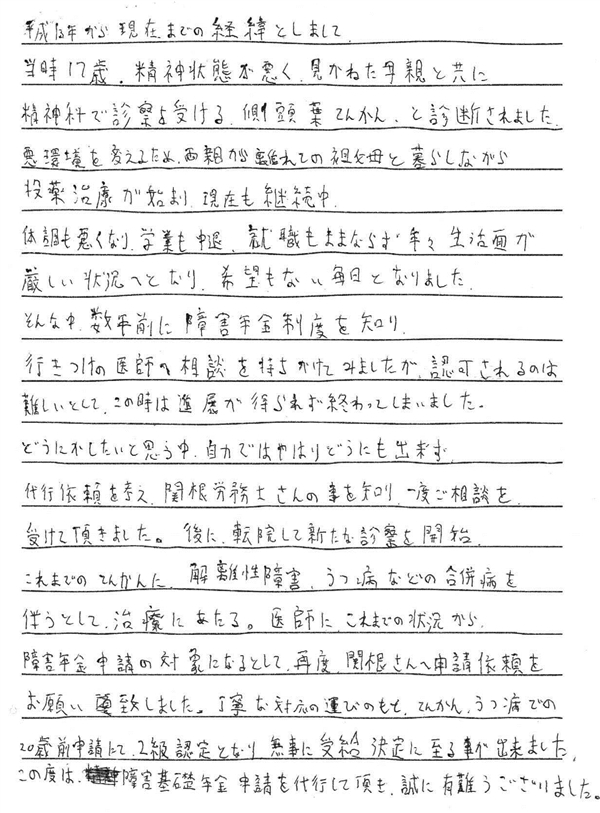 平成13年から現在までの経緯としまして
当時17歳、精神状態が悪く、見かねた母親と共に
精神科で診察を受ける、側頭葉てんかん、と診断されました。
悪環境を変えるため、両親から離れての祖父母と暮らしながら
投薬治療が始まり、現在も継続中、
体調も悪くなり、学業も中退、就職もままならず年々生活面が
厳しい状況へとなり、希望もない毎日となりました。
そんな中、数年前に障害年金制度を知り、
行きつけの医師へ相談を持ちかけてみましたが、認可されるのは
難しいとして、この時は進展が得られず終わってしまいました。
どうにかしたいと思う中、自力ではやはりどうにも出来ず、
代行依頼を考え、関根労務士さんの事を知り、一度ご相談を
受けて頂きました。後に、転院して新たな診察を開始、
これまでのてんかんに、解離性障害、うつ病などの合併病を
伴うとして、治療にあたる。医師に、これまでの状況から、
障害年金申請の対象になるとして、再度、関根さんへ申請依頼を
お願い致しました。丁寧な対応の運びのもと、てんかん、うつ病での
20歳前申請にて、2級認定となり、無事に受給決定に至る事が出来ました、
この度は、障害基礎年金申請を代行して頂き、誠に有難うございました。